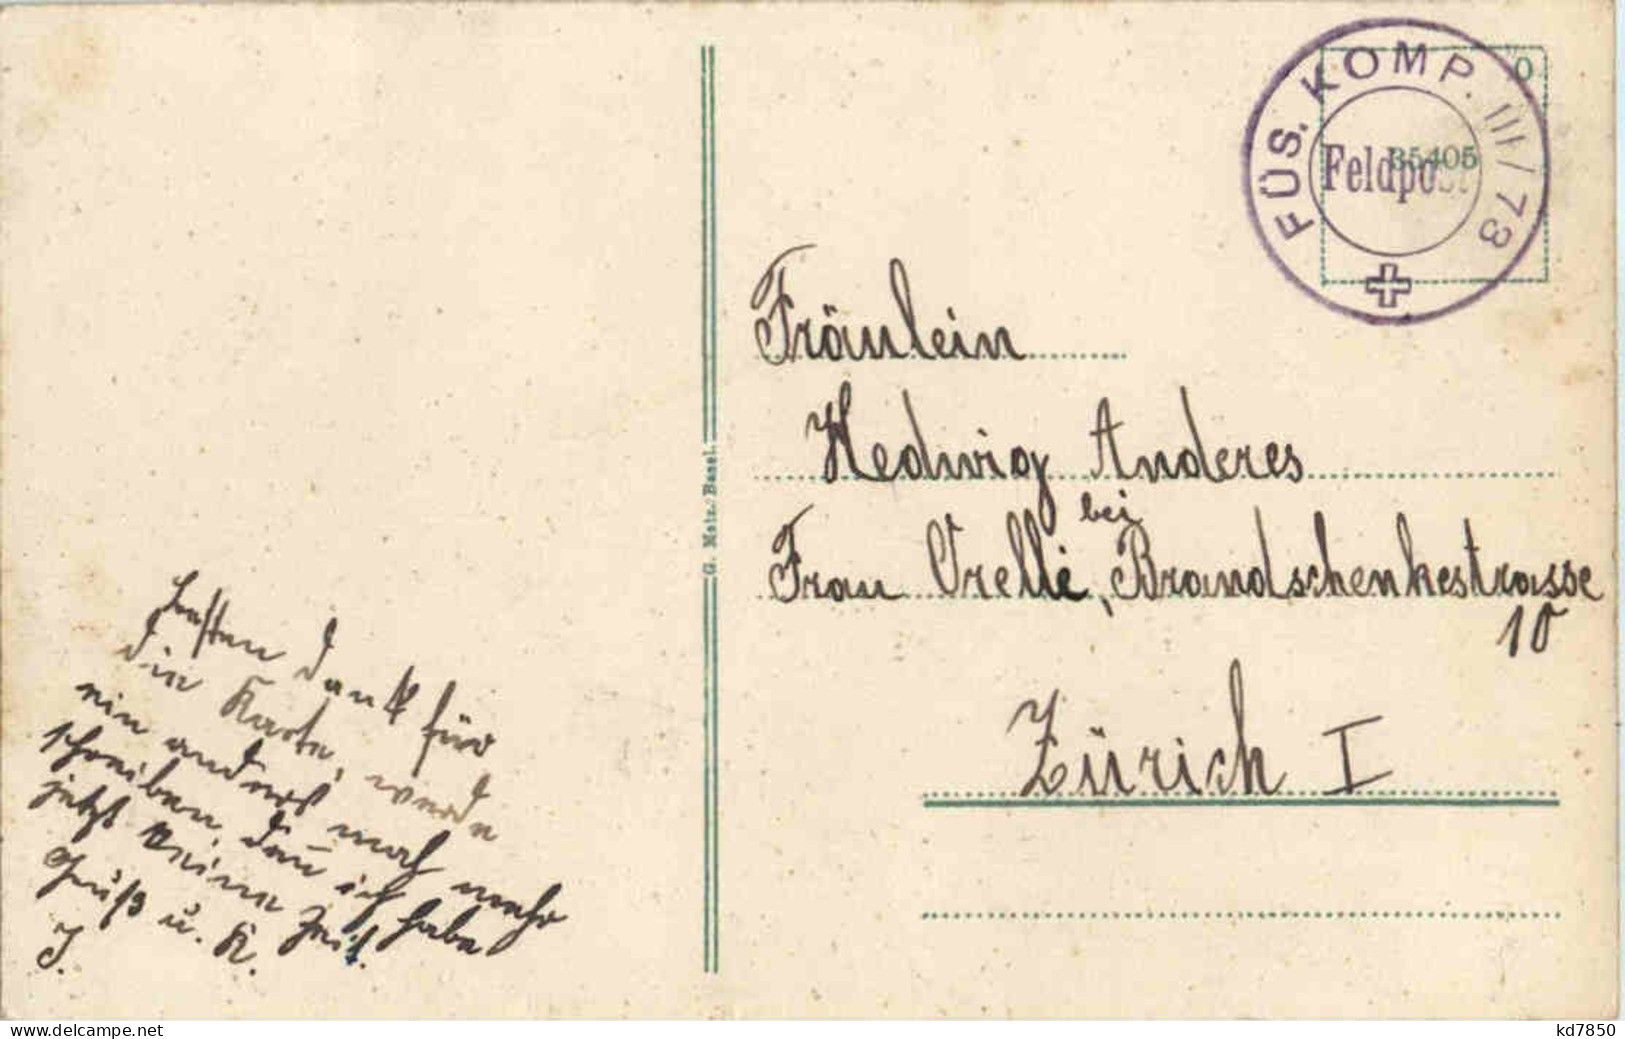 FÜS. KOMP. III/73
Feldpost
35405
Fräulein
Hedwig Anderes
bei
Frau Orelli, Brandschenkestrasse
10
Zürich I
G. Metz, Basel.
Besten Dank für
die Karte, werde
ein andres mal mehr
schreiben, dan̄ ich habe
jetzt keine Zeit.
Gruß u. K.
J.
www.delcampe.net
kd7850